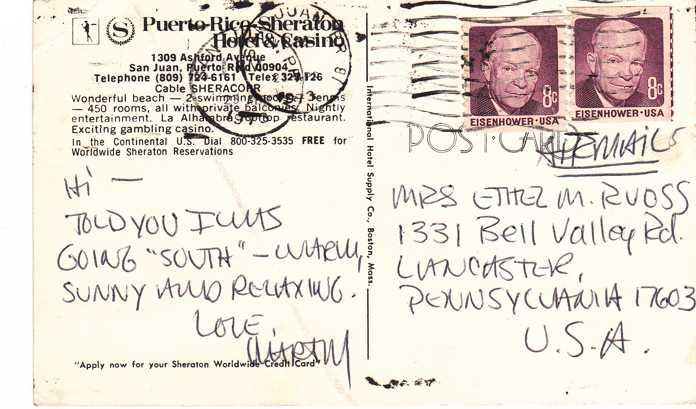 Puerto Rico Sheraton
Hotel & Casino
1309 Ashford Avenue
San Juan, Puerto Rico 00904
Telephone (809) 724-6161 Telex 325-126
Cable SHERACORR
Wonderful beach — 2 swimming pools — Tennis
— 450 rooms, all with private balconies. Nightly
entertainment. La Alhambra rooftop restaurant.
Exciting gambling casino.
In the Continental U.S. Dial 800-325-3535 FREE for
Worldwide Sheraton Reservations
Hi —
TOLD YOU I WAS
GOING "SOUTH" — WARM,
SUNNY AND RELAXING.
LOVE,
"Apply now for your Sheraton Worldwide Credit Card"
International Hotel Supply Co., Boston, Mass.
SAN JUAN
1973
8c
EISENHOWER·USA
8c
EISENHOWER·USA
POST CARD
AIRMAIL
MRS ETHEL M. RUOSS
1331 Bell Valley Rd.
LANCASTER,
PENNSYLVANIA 17603
U.S.A.